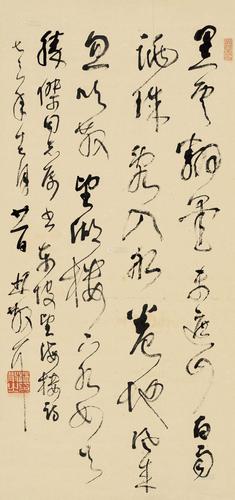 黑雲翻墨未遮山白雨
跳珠亂入船卷地風來
忽吹散望湖樓下水如天
勝傑同志屬書東坡望海樓詩
年 月廿一日趙